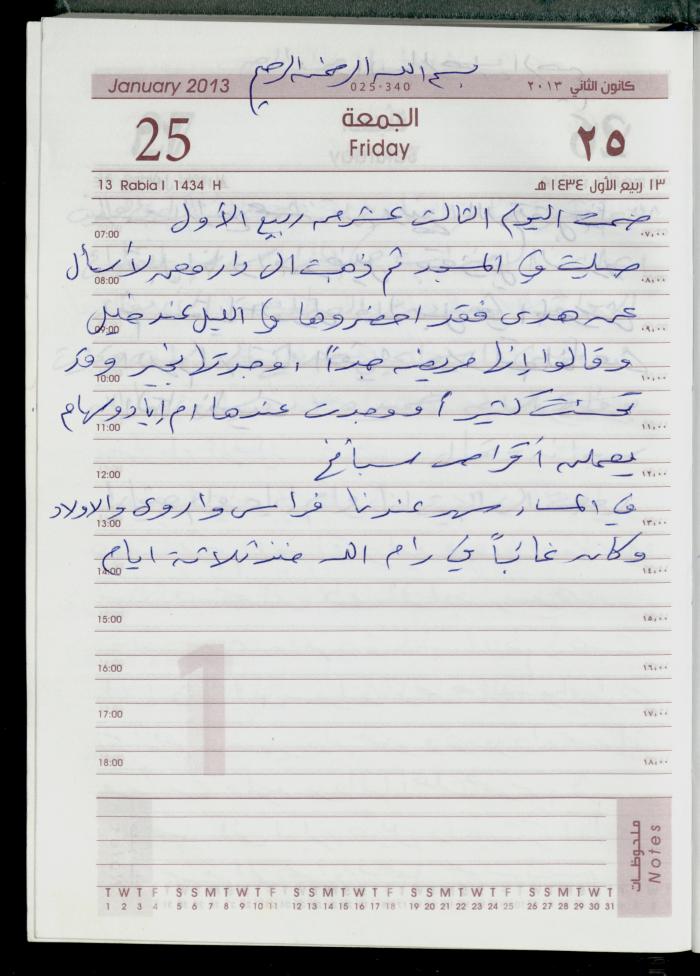 بسم الله الرحمن الرحيم
January 2013
025-340
كانون الثاني ٢٠١٣
25
الجمعة
Friday
٢٥
13 Rabia I 1434 H
١٣ ربيع الأول ١٤٣٤ هـ
صمت اليوم الثالث عشر من ربيع الأول
07:00 ٠٧,٠٠
صليت في المسجد ثم ذهبت الى دار لأسأل
08:00 ٠٨,٠٠
عن هدى فقد احضروها في الليل عند خليل
09:00 ٠٩,٠٠
وقالوا إنها مريضه جداً ، وجدتها بخير وقد
10:00 ١٠,٠٠
تحسنت كثيراً ووجدت عندها ام إياد وسهام
11:00 ١١,٠٠
يعملن أقراص سبانخ
12:00 ١٢,٠٠
في المساء سهر عندنا فراس واروى والاولاد
13:00 ١٣,٠٠
وكان غائباً في رام الله منذ ثلاثة ايام
14:00 ١٤,٠٠
15:00 ١٥,٠٠
16:00 ١٦,٠٠
1
17:00 ١٧,٠٠
18:00 ١٨,٠٠
ملحوظات
Notes
T W T F S S M T W T F S S M T W T F S S M T W T F S S M T W T
1 2 3 4 5 6 7 8 9 10 11 12 13 14 15 16 17 18 19 20 21 22 23 24 25 26 27 28 29 30 31